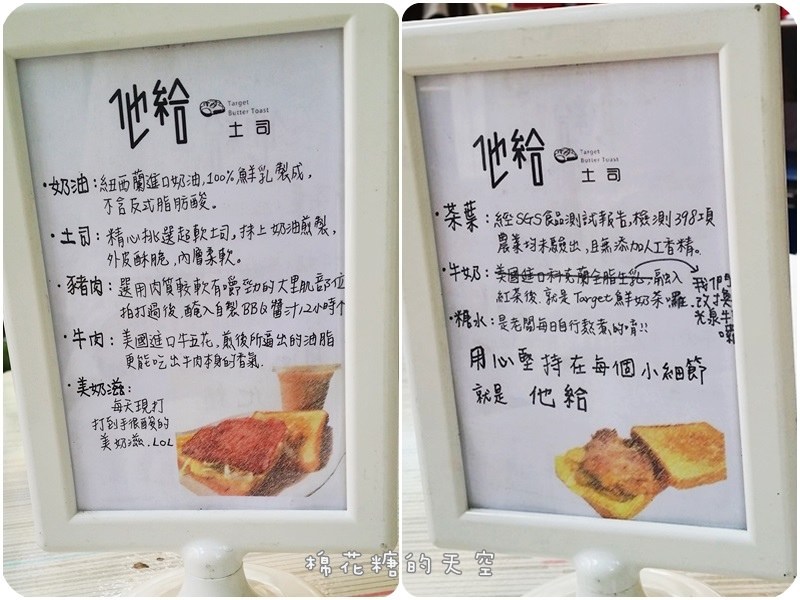 他給
Target
Butter Toast
土司
•奶油：紐西蘭進口奶油，100%鮮乳製成，
不含反式脂肪酸。
•土司：精心挑選超軟土司，抹上奶油煎製，
外皮酥脆，內層柔軟。
•豬肉：選用肉質較軟有嚼勁的大里肌部位
拍打過後，醃入自製BBQ醬汁12小時
•牛肉：美國進口牛五花，煎後所逼出的油脂
更能吃出牛肉本身的香氣.
•美奶滋：
每天現打
打到手很酸的
美奶滋.LOL
他給
Target
Butter Toast
土司
•茶葉：經SGS食品測試報告，檢測398項
農藥均未驗出，且無添加人工香精.
•牛奶：美國進口科克蘭全脂生乳，融入
紅茶後.就是Target鮮奶茶囉.
我們
改換
光泉牛
•糖水：是老闆每日自行熬煮的唷!!
用心堅持在每個小細節
就是 他給
棉花糖的天空